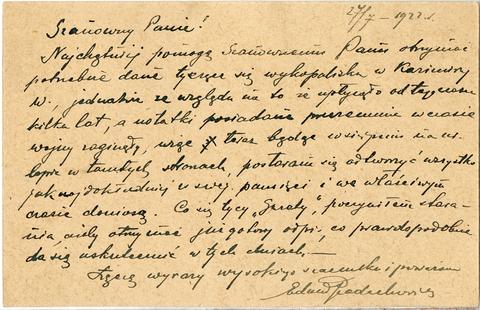 27/7 – 1922 r.
Szanowny Panie!
Najchętniej pomogę Szanownemu Panu otrzymać
potrzebne dane tyczące się wykopaliska w Kazimierzy
w., jednakże ze względu na to że upłynęło od tego czasu
kilka lat, a notatki posiadane przezemnie w czasie
wojny zaginęły, teraz będąc w sierpniu na ur-
lopie w tamtych stronach, postaram się odtworzyć wszystko
jak najdokładniej w swej pamięci i we właściwym
czasie doniosę. Co się tyczy „ , poczyniłem stara-
nia ażeby otrzymać już gotowy odpis, co prawdopodobnie
da się uskutecznić w tych dniach. –
Łączę wyrazy wysokiego szacunku i